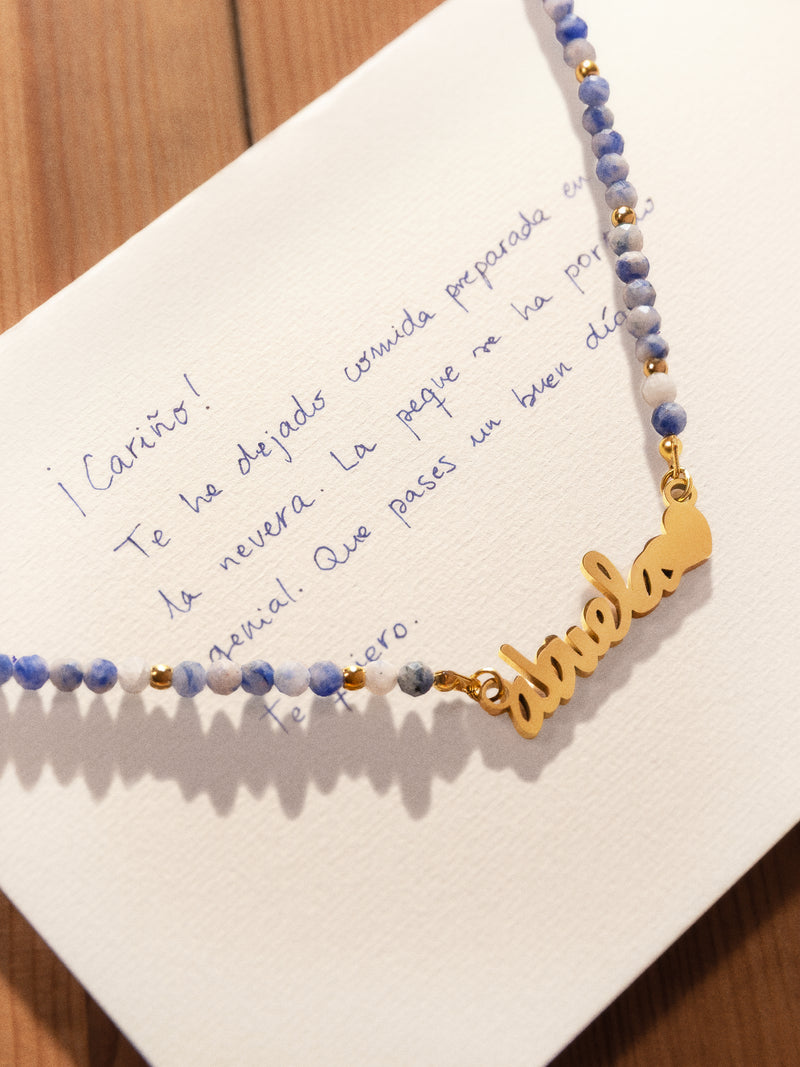 ¡Cariño!
Te he dejado comida preparada en
la nevera. La peque se ha portado
genial. Que pases un buen día
Te quiero.
abuela